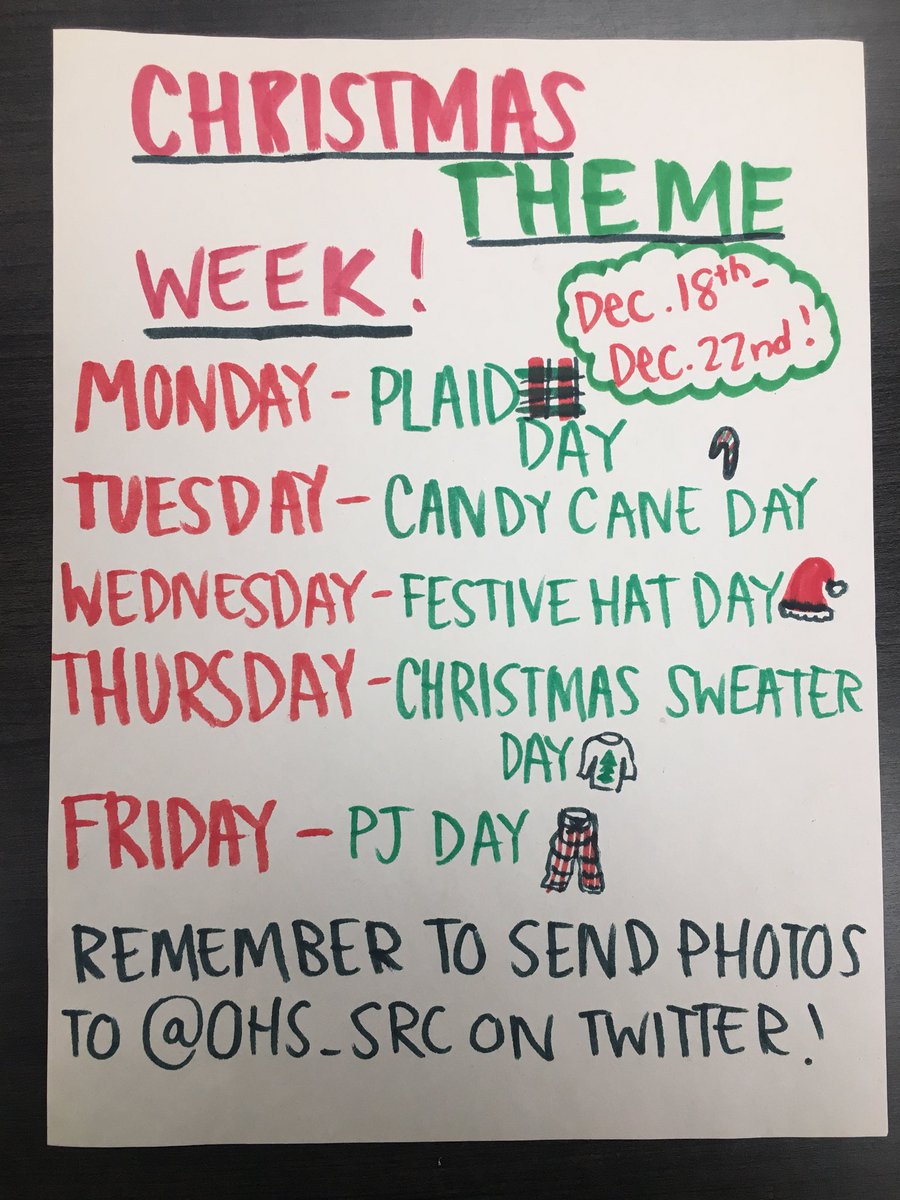 CHRISTMAS
THEME
WEEK!
Dec. 18th -
Dec. 22nd!
MONDAY - PLAID
DAY
TUESDAY - CANDY CANE DAY
WEDNESDAY - FESTIVE HAT DAY
THURSDAY - CHRISTMAS SWEATER
DAY
FRIDAY - PJ DAY
REMEMBER TO SEND PHOTOS
TO @OHS_SRC ON TWITTER!